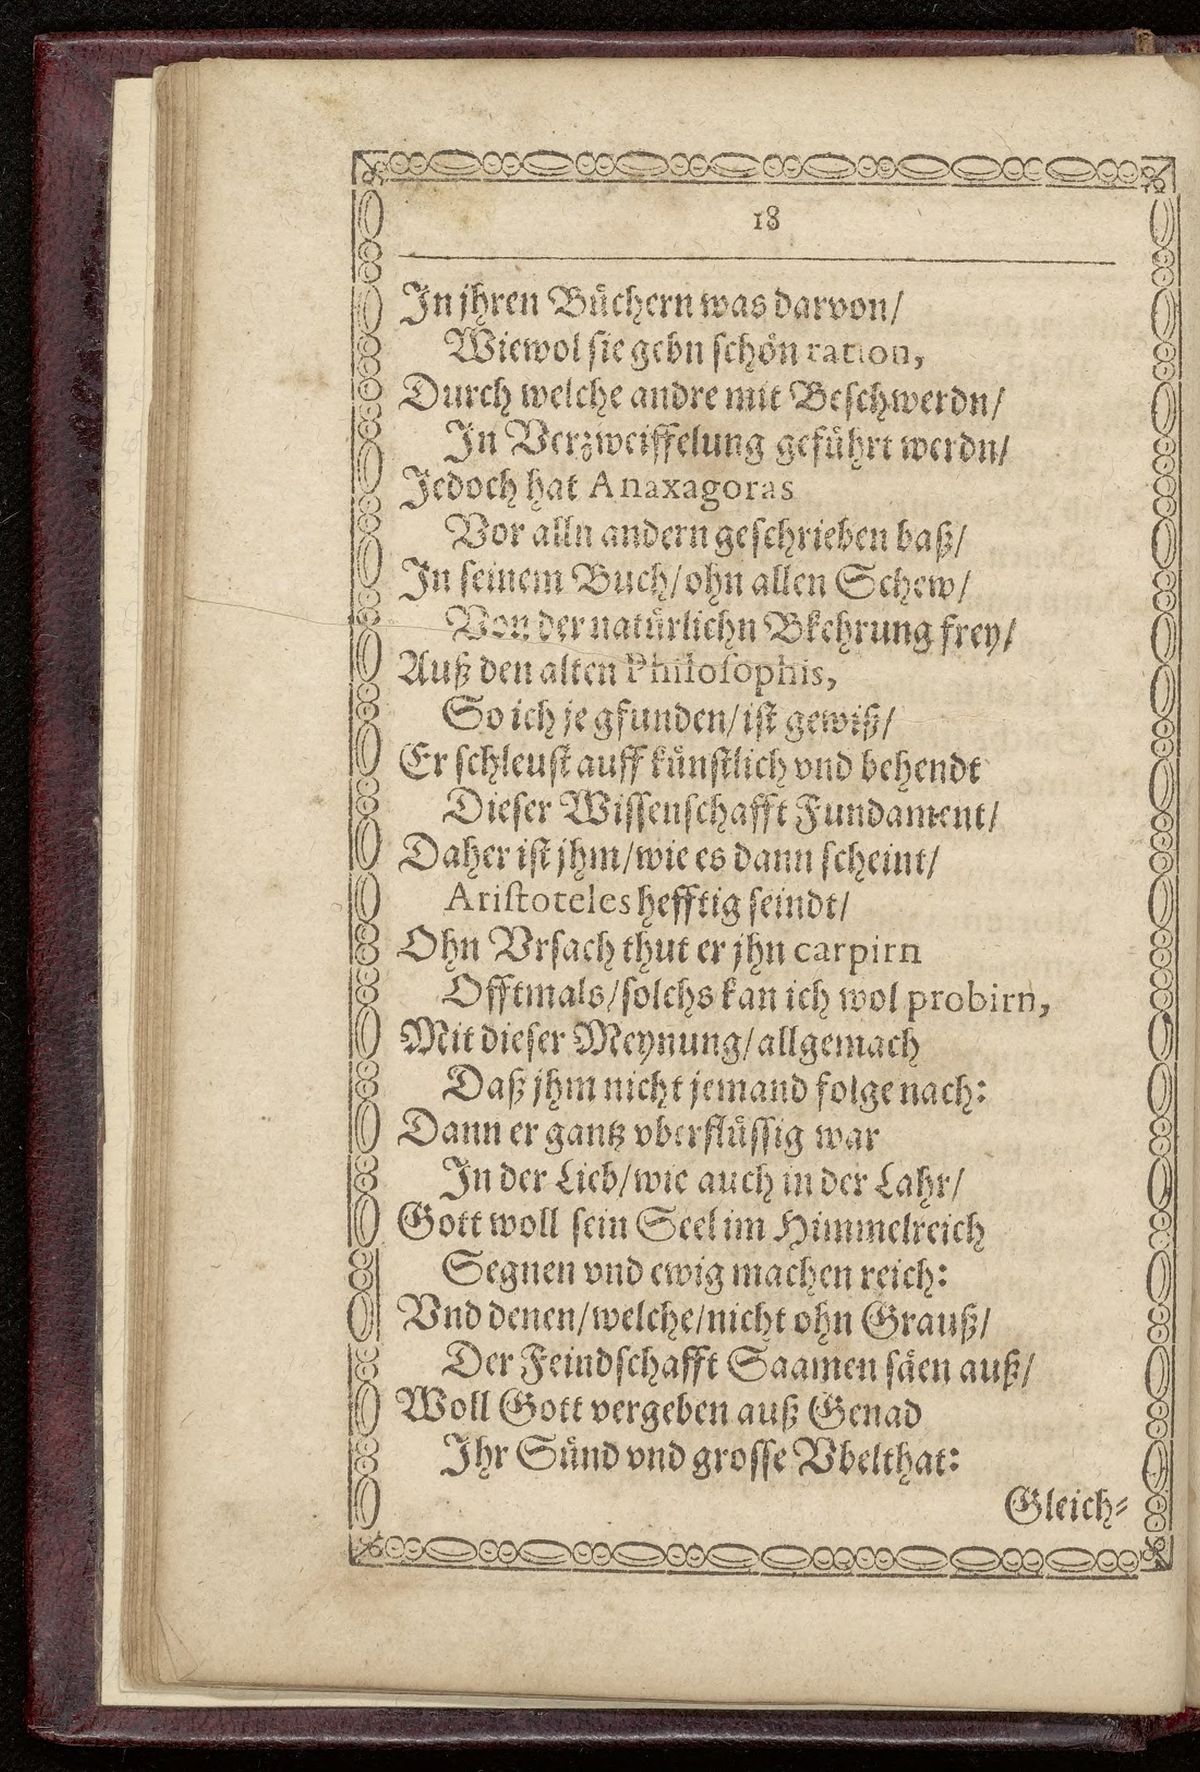 18
In jhren Büchern was darvon/
Wiewol sie gebn schön ration,
Durch welche andre mit Beschwerdn/
In Verzweiffelung geführt werdn/
Jedoch hat Anaxagoras
Vor alln andern geschrieben baß/
In seinem Buch/ ohn allen Schew/
Von der natürlichn Bkehrung frey/
Auß den alten Philosophis,
So ich je gfunden/ ist gewiß/
Er schleust auff künstlich vnd behendt
Dieser Wissenschafft Fundament/
Daher ist jhm/ wie es dann scheint/
Aristoteles hefftig feindt/
Ohn Vrsach thut er jhn carpirn
Offtmals/ solchs kan ich wol probirn,
Mit dieser Meynung/ allgemach
Daß jhm nicht jemand folge nach:
Dann er gantz vberflüssig war
In der Lieb/ wie auch in der Lahr/
Gott woll sein Seel im Himmelreich
Segnen vnd ewig machen reich:
Vnd denen/ welche/ nicht ohn Grauß/
Der Feindschafft Saamen säen auß/
Woll Gott vergeben auß Genad
Ihr Sünd vnd grosse Vbelthat:
Gleich-